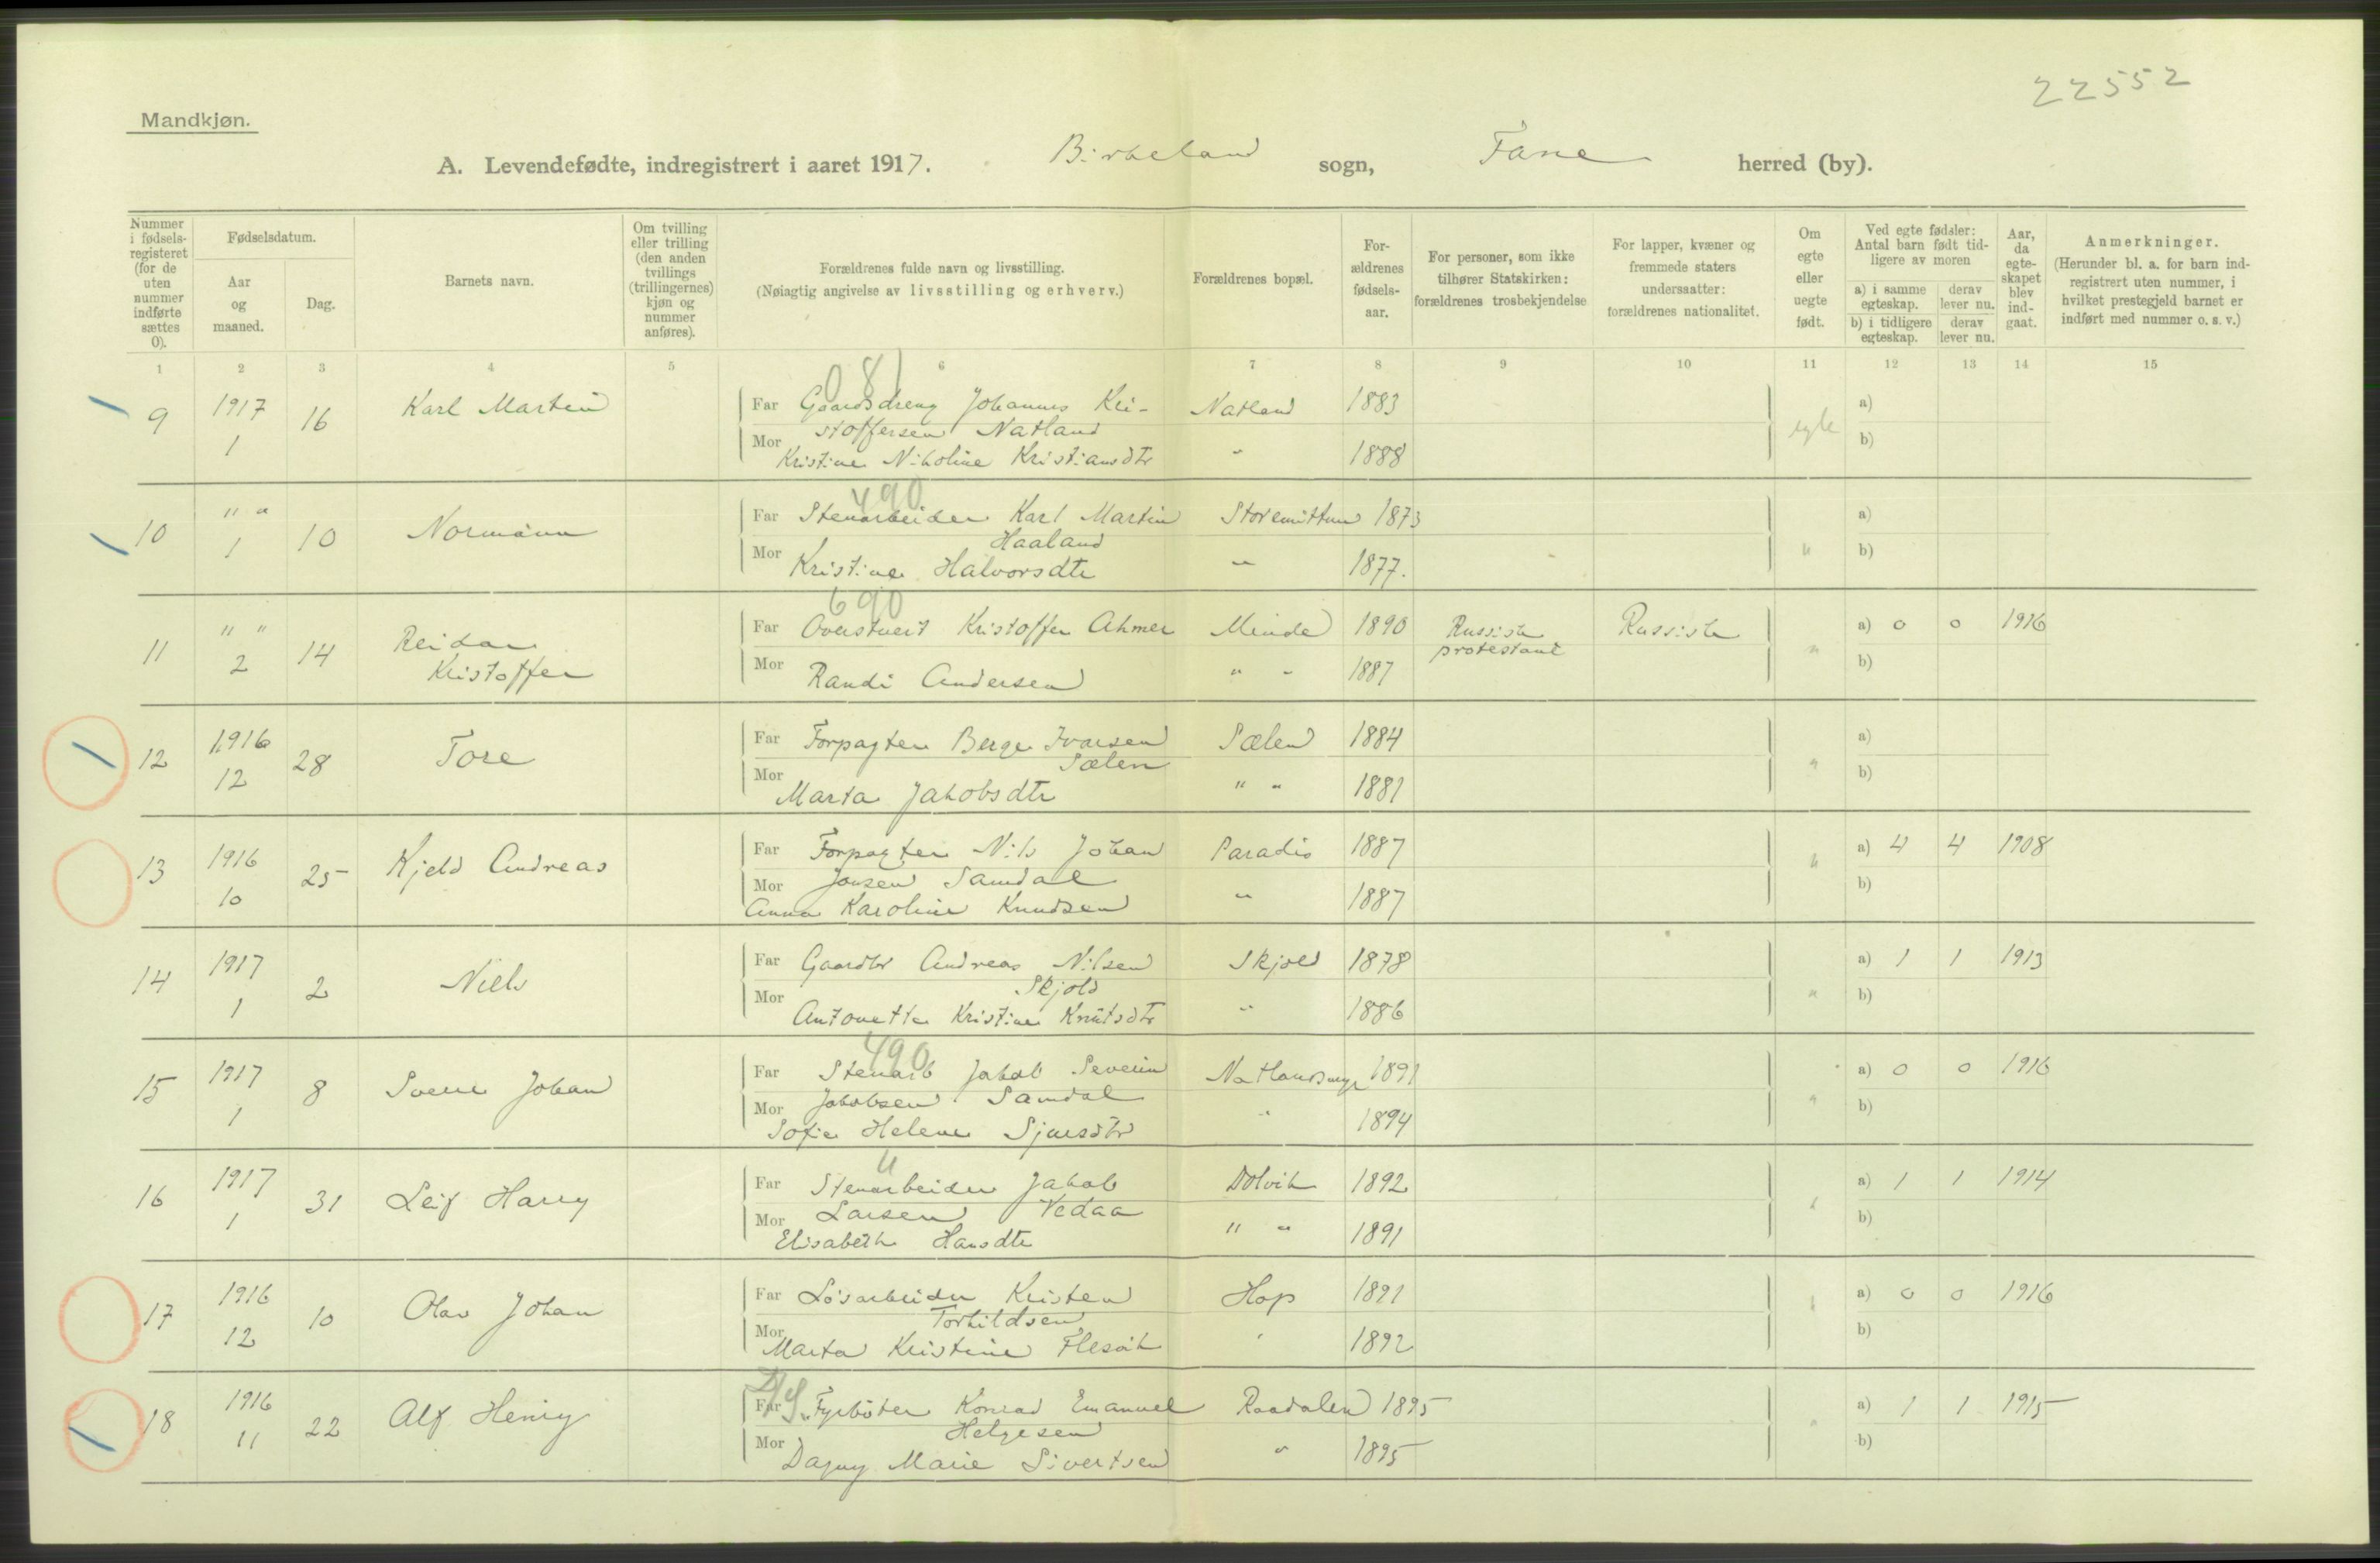 22552
Mandkjøn.
A. Levendefødte, indregistrert i aaret 1917. Birkeland sogn, Fane herred (by).
Nummer i fødselsregisteret (for de uten nummer indførte sættes 0).
Fødselsdatum.
Aar og maaned.
Dag.
Barnets navn.
Om tvilling eller trilling (den anden tvillings (trillingernes) kjøn og nummer anføres).
Forældrenes fulde navn og livsstilling.
(Nøiagtig angivelse av livsstilling og erhverv.)
Forældrenes bopæl.
Forældrenes fødselsaar.
For personer, som ikke tilhører Statskirken: forældrenes trosbekjendelse
For lapper, kvæner og fremmede staters undersaatter: forældrenes nationalitet.
Om egte eller uegte født.
Ved egte fødsler: Antal barn født tidligere av moren
a) i samme egteskap. derav lever nu.
b) i tidligere egteskap. derav lever nu.
Aar, da egteskapet blev indgaat.
Anmerkninger.
(Herunder bl. a. for barn indregistrert uten nummer, i hvilket prestegjeld barnet er indført med nummer o. s. v.)
1 2 3 4 5 6 7 8 9 10 11 12 13 14 15
081
9 1917 1 16 Karl Martin Far Gaardsdreng Johannes Kri- Natland 1883 egte a)
stoffersen Natland
Mor Kristine Nikoline Kristiansdtr " 1888 b)
490
10 " " 1 10 Normann Far Stenarbeider Karl Martin Storemittun 1873 " a)
Haaland
Mor Kristine Halvorsdtr " 1877. b)
690
11 " " 2 14 Reidar Far Kristoffer Ahmer Minde 1890 Russisk Russisk " a) 0 0 1916
Kristoffer protestant
Mor Randi Andersen " " 1887 b)
12 1916 12 28 Tore Far Forpagter Berge Ivarsen Sælen 1884 " a)
Sælen
Mor Marta Jakobsdtr " " 1881 b)
13 1916 10 25 Kjeld Andreas Far Forpagter Nils Johan Paradis 1887 " a) 4 4 1908
Jonsen Samdal
Mor Anna Karoline Knudsen " 1887 b)
14 1917 1 2 Niels Far Gaardbr Andreas Nilsen Skjold 1878 " a) 1 1 1913
Skjold
Mor Antonette Kristine Knutsdtr " 1886 b)
490
15 1917 1 8 Sverre Johan Far Stenarb Jakob Severin 1891 " a) 0 0 1916
Jakobsen Samdal
Mor Sofie Helene Sjursdtr " 1894 b)
"
16 1917 1 31 Leif Harry Far Stenarbeider Jakob Dolvik 1892 " a) 1 1 1914
Larsen Vedaa
Mor Elisabeth Hansdtr " " 1891 b)
17 1916 12 10 Olav Johan Far Løsarbeider Kristen Hop 1891 " a) 0 0 1916
Torkildsen
Mor Marta Kristine " 1892 b)
18 1916 11 22 Alf Henry Far Fyrbøter Konrad Emanuel Raadalen 1895 " a) 1 1 1915
Helgesen
Mor Dagny Marie Sivertsen " 1895 b)